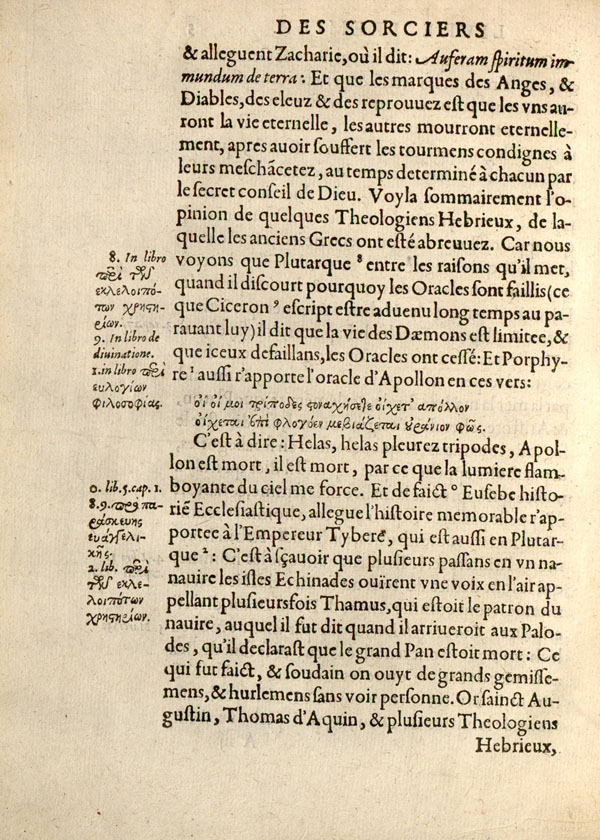 DES SORCIERS
& alleguent Zacharie, où il dit: Auferam spiritum im-
mundum de terra: Et que les marques des Anges, &
Diables, des eleuz & des reprouuez est que les vns au-
ront la vie eternelle, les autres mourront eternelle-
ment, apres auoir souffert les tourmens condignes à
leurs meschãcetez, au temps determiné à chacun par
le secret conseil de Dieu. Voyla sommairement l'o-
pinion de quelques Theologiens Hebrieux, de la-
quelle les anciens Grecs ont esté abreuuez. Car nous
voyons que Plutarque 8 entre les raisons qu'il met,
quand il discourt pourquoy les Oracles sont faillis (ce
que Ciceron 9 escript estre aduenu long temps au pa-
rauant luy) il dit que la vie des Dæmons est limitee, &
que iceux defaillans, les Oracles ont cessé: Et Porphy-
re 1 aussi r'apporte l'oracle d'Apollon en ces vers:
οἲ οἴ μοι τρίποδες στοναχήσετε οἴχετ' ἀπόλλον
οἴχεται ἐπὶ φλογόεν με βιάζεται οὐράνιον φῶς.
C'est à dire: Helas, helas pleurez tripodes, Apol-
lon est mort, il est mort, par ce que la lumiere flam-
boyante du ciel me force. Et de faict ° Eusebe histo-
riẽ Ecclesiastique, allegue l'histoire memorable r'ap-
portee à l'Empereur Tybere, qui est aussi en Plutar-
que 2: C'est à sçauoir que plusieurs passans en vn na-
nauire les isles Echinades ouïrent vne voix en l'air ap-
pellant plusieursfois Thamus, qui estoit le patron du
nauire, auquel il fut dit quand il arriueroit aux Palo-
des, qu'il declarast que le grand Pan estoit mort: Ce
qui fut faict, & soudain on ouyt de grands gemisse-
mens, & hurlemens sans voir personne. Or sainct Au-
gustin, Thomas d'Aquin, & plusieurs Theologiens
Hebrieux,
8. In libro
περὶ τῆς
ἐκλελοιπό-
των χρηση-
ρίων.
9. In libro de
diuinatione.
1. in libro περὶ
εὐλογίων
φιλοσοφίας.
0. lib. 5. cap. 1.
8. 9. πρὸ πα-
ράσκευης
εὐαγγελι-
κῆς.
2. lib. περὶ
τῆς ἐκλε-
λοιπότων
χρηστηρίων.